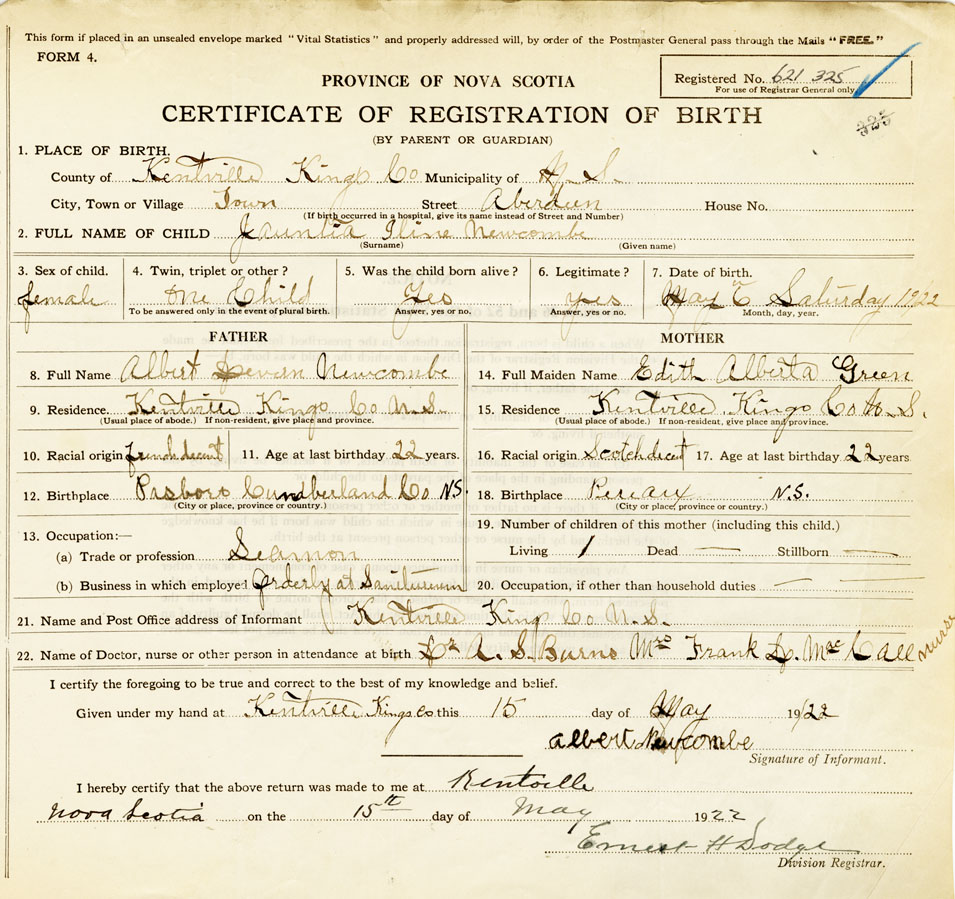 This form if placed in an unsealed envelope marked "Vital Statistics" and properly addressed will, by order of the Postmaster General pass through the Mails "FREE."
FORM 4.
PROVINCE OF NOVA SCOTIA
Registered No. 621 325
For use of Registrar General only
CERTIFICATE OF REGISTRATION OF BIRTH
325
(BY PARENT OR GUARDIAN)
1. PLACE OF BIRTH.
County of Kentville Kings Co Municipality of N.S.
City, Town or Village Town Street Aberdeen House No.
(If birth occurred in a hospital, give its name instead of Street and Number)
2. FULL NAME OF CHILD Jauntia Iline Newcombe
(Surname) (Given name)
3. Sex of child. 4. Twin, triplet or other? 5. Was the child born alive? 6. Legitimate? 7. Date of birth.
female One Child Yes yes May 6 Saturday 1922
To be answered only in the event of plural birth. Answer, yes or no. Answer, yes or no. Month, day, year.
FATHER MOTHER
8. Full Name Albert Newcombe 14. Full Maiden Name Edith Alberta Green
9. Residence. Kentville Kings Co N.S. 15. Residence Kentville Kings Co N.S.
(Usual place of abode.) If non-resident, give place and province. (Usual place of abode.) If non-resident, give place and province.
10. Racial origin french decent 11. Age at last birthday 22 years. 16. Racial origin Scotch decent 17. Age at last birthday 22 years.
12. Birthplace Pasboro Cundberland Co N.S. 18. Birthplace Pereaux N.S.
(City or place, province or country.) (City or place, province or country.)
19. Number of children of this mother (including this child.)
13. Occupation:—
(a) Trade or profession Seamon Living 1 Dead — Stillborn —
(b) Business in which employed Orderly at Saniturewm 20. Occupation, if other than household duties —
21. Name and Post Office address of Informant Kentville Kings Co N.S.
22. Name of Doctor, nurse or other person in attendance at birth Dr A. S. Burns Mrs Frank Mac Call nurse
I certify the foregoing to be true and correct to the best of my knowledge and belief.
Given under my hand at Kentville Kings co this 15 day of May 19/22
albert Newcombe
Signature of Informant.
I hereby certify that the above return was made to me at Kentville
Nova Scotia on the 15th day of May 1922
Ernest H Dodge
Division Registrar.